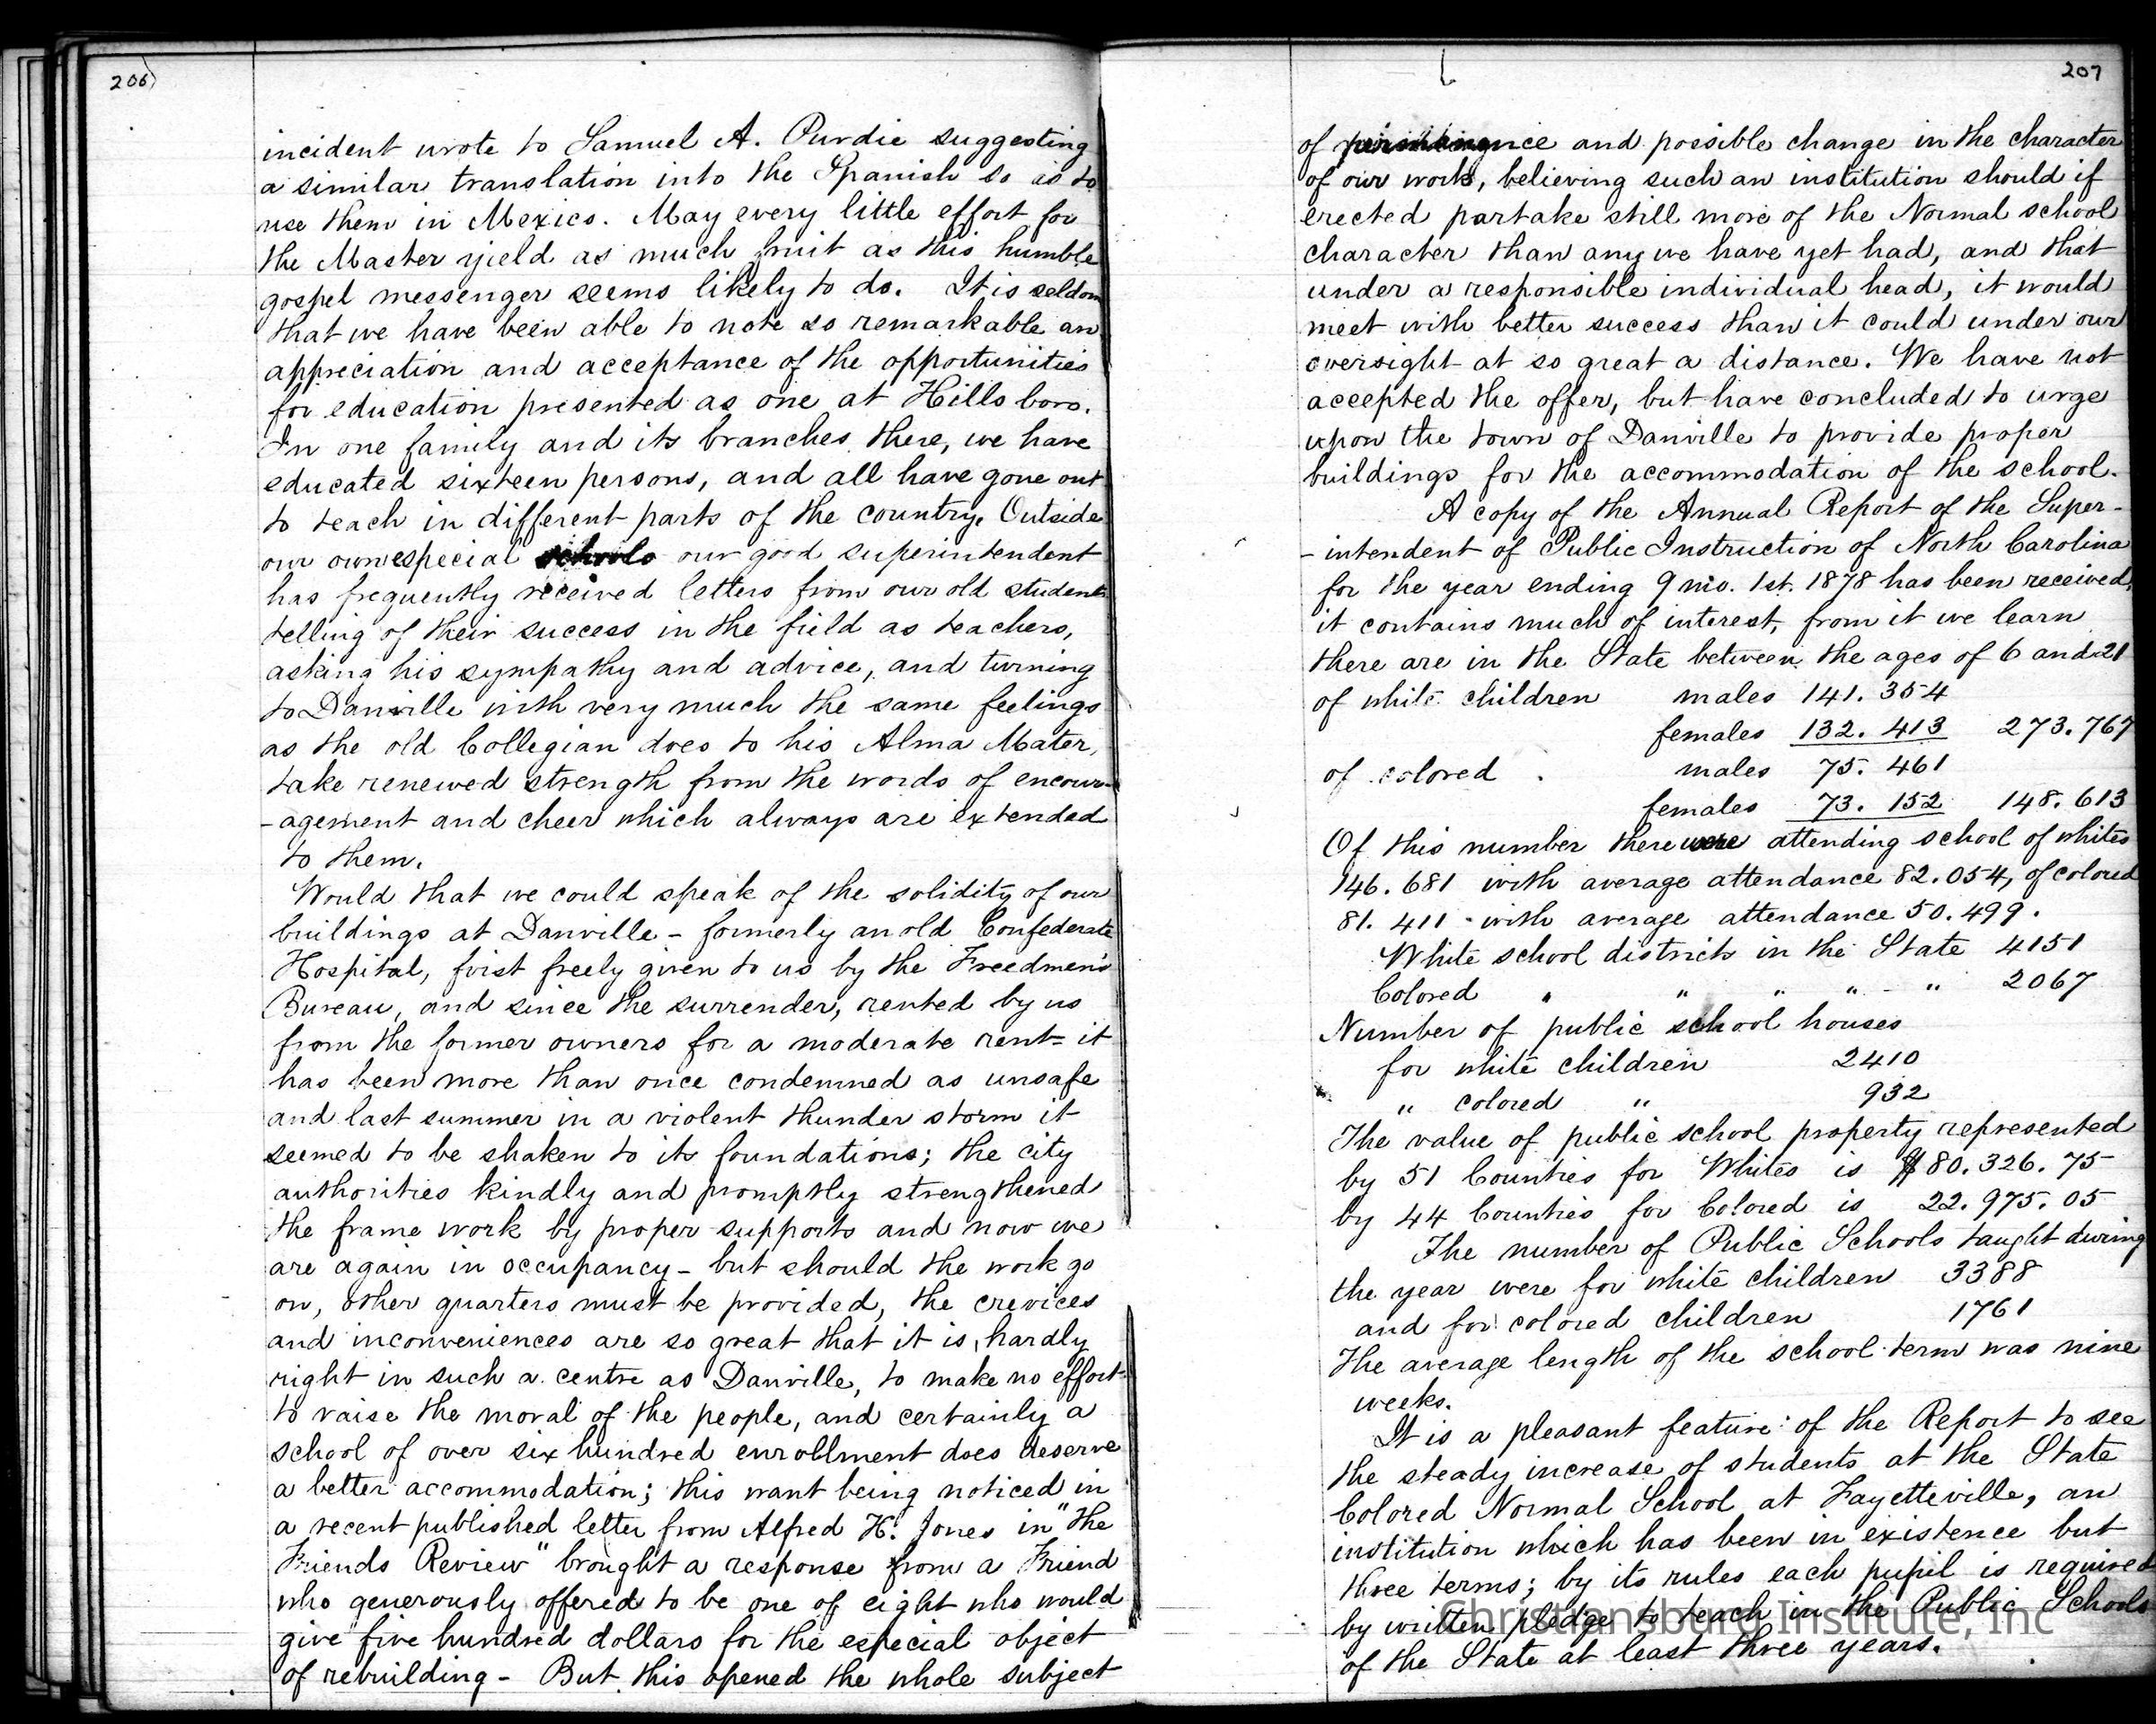 206
incident wrote to Samuel A. Purdie suggesting
a similar translation into the Spanish so as to
use them in Mexico. May every little effort for
the Master yield as much fruit as this humble
gospel messenger seems likely to do. It is seldom
that we have been able to note so remarkable an
appreciation and acceptance of the opportunities
for education presented as one at Hillsboro.
In one family and its branches there, we have
educated sixteen persons, and all have gone out
to teach in different parts of the country. Outside
our own especial schools our good superintendent
has frequently received letters from our old students
telling of their success in the field as teachers,
asking his sympathy and advice, and turning
to Danville with very much the same feelings
as the old Collegian does to his Alma Mater,
take renewed strength from the words of encour-
-agement and cheer which always are extended
to them.
Would that we could speak of the solidity of our
buildings at Danville - formerly an old Confederate
Hospital, first freely given to us by the Freedmen's
Bureau, and since the surrender, rented by us
from the former owners for a moderate rent = it
has been more than once condemned as unsafe
and last summer in a violent thunder storm it
seemed to be shaken to its foundations; the city
authorities kindly and promptly strengthened
the frame work by proper supports and now we
are again in occupancy - but should the work go
on, other quarters must be provided, the crevices
and inconveniences are so great that it is hardly
right in such a centre as Danville, to make no effort
to raise the moral of the people, and certainly a
school of over six hundred enrollment does deserve
a better accommodation; this want being noticed in
a recent published letter from Alfred H. Jones in "the
Friends Review" brought a response from a Friend
who generously offered to be one of eight who would
give five hundred dollars for the especial object
of rebuilding - But this opened the whole subject
207
of permanence and possible change in the character
of our work, believing such an institution should if
erected partake still more of the Normal school
character than any we have yet had, and that
under a responsible individual head, it would
meet with better success than it could under our
oversight at so great a distance. We have not
accepted the offer, but have concluded to urge
upon the town of Danville to provide proper
buildings for the accommodation of the school.
A copy of the Annual Report of the Super-
-intendent of Public Instruction of North Carolina
for the year ending 9 mo. 1st. 1878 has been received,
it contains much of interest, from it we learn
there are in the State between the ages of 6 and 21
of white children males 141.354
females 132.413 273.767
of colored males 75.461
females 73.152 148.613
Of this number there were attending school of whites
146.681 with average attendance 82.054, of colored
81.411 with average attendance 50.499.
White school districts in the State 4151
Colored " " " " " 2067
Number of public school houses
for white children 2410
" colored " 932
The value of public school property represented
by 51 Counties for Whites is $80.326.75
by 44 Counties for Colored is 22.975.05
The number of Public Schools taught during
the year were for white children 3388
and for colored children 1761
The average length of the school term was nine
weeks.
It is a pleasant feature of the Report to see
the steady increase of students at the State
Colored Normal School at Fayetteville, an
institution which has been in existence but
three terms; by its rules each pupil is required
by written pledge to teach in the Public Schools
of the State at least three years.
Christiansburg Institute, Inc